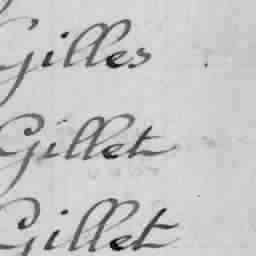 Gilles
Gillet
Gillet